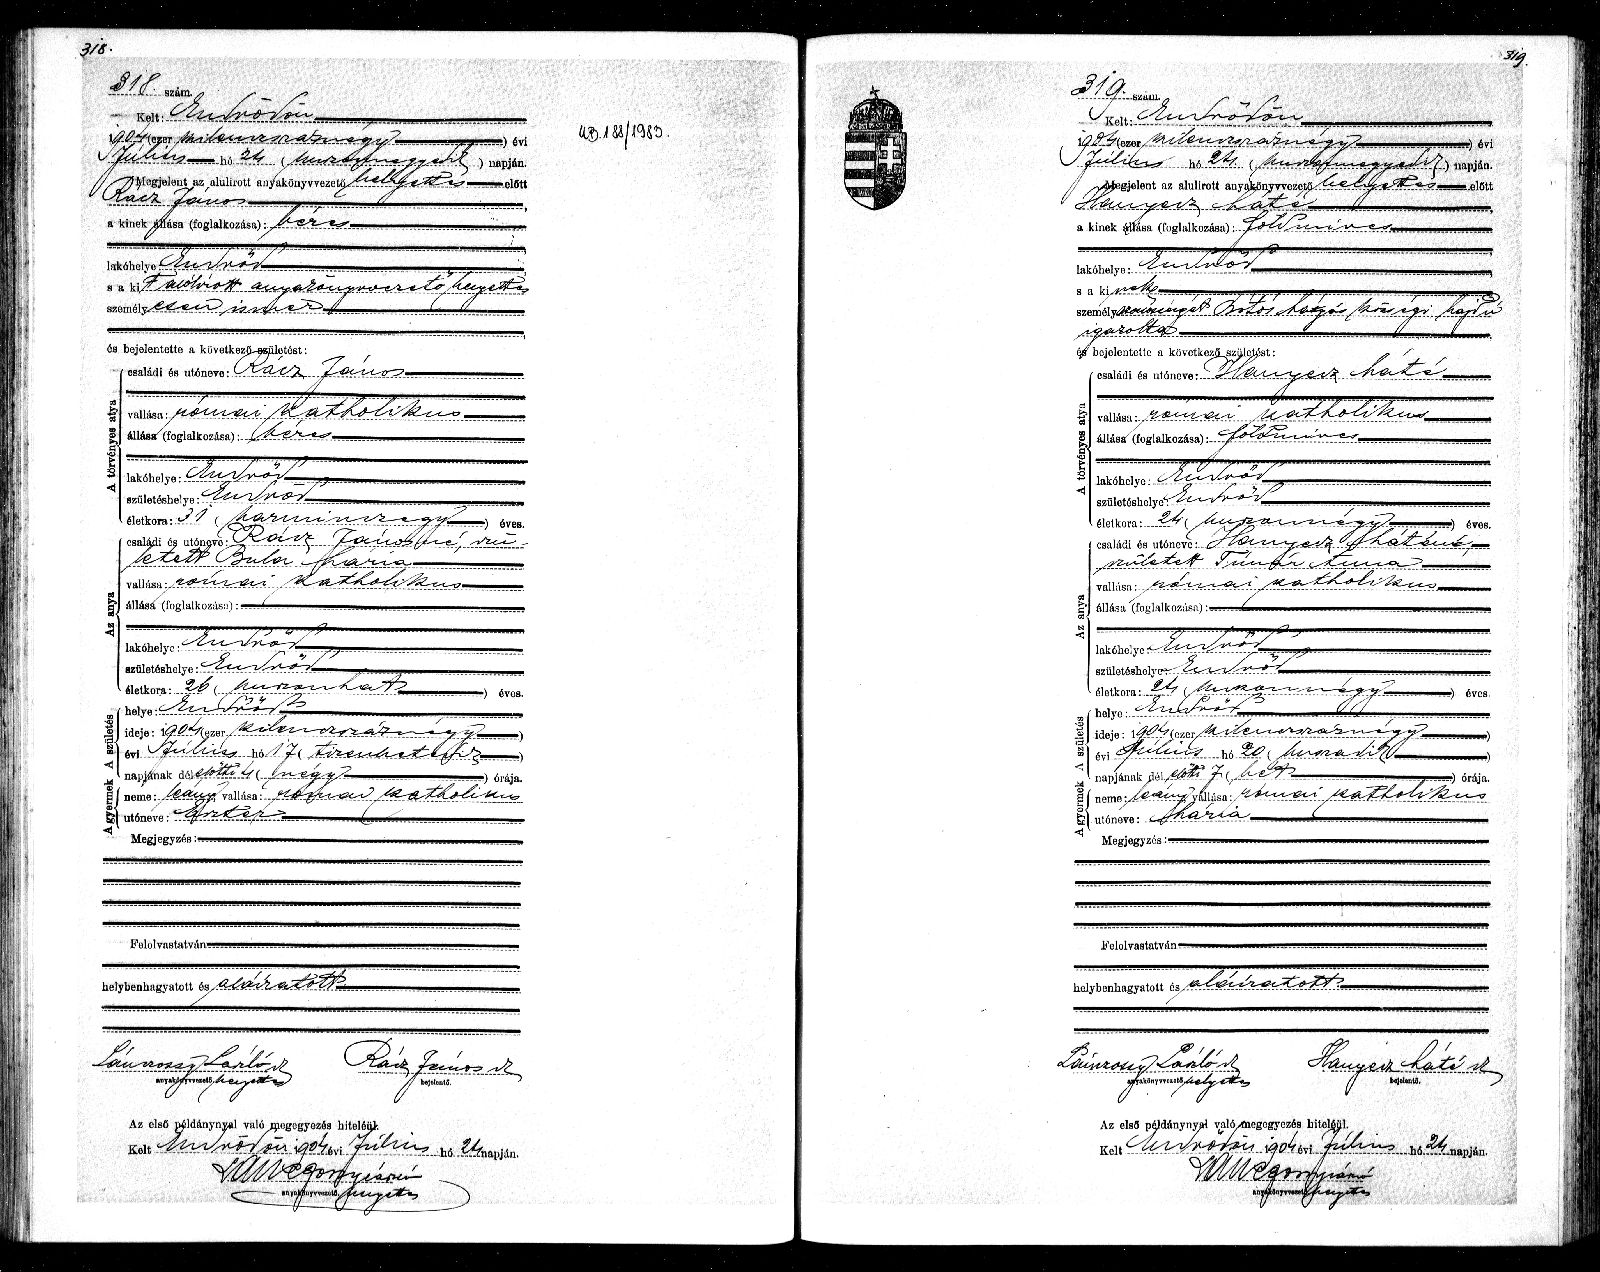 318.
318. szám.
Kelt: Endrődön
1904 (ezer kilenczszáznégy) évi
Július hó 24 (huszonnegyedik) napján.
Megjelent az alulirott anyakönyvvezető helyettes előtt
Rácz János
a kinek állása (foglalkozása): béres
lakóhelye Endrőd
s a kit alólirott anyakönyvvezető helyettes
személyesen ismer
és bejelentette a következő születést:
A törvényes atya
családi és utóneve: Rácz János
vallása: római katholikus
állása (foglalkozása): béres
lakóhelye: Endrőd
születéshelye: Endrőd
életkora: 31 (harminczegy) éves.
Az anya
családi és utóneve: Rácz Jánosné, szü-
letett Bula Mária
vallása: római katholikus
állása (foglalkozása):
lakóhelye: Endrőd
születéshelye: Endrőd
életkora: 26 (huszonhat) éves.
A gyermek A születés
helye: Endrőd
ideje: 1904 (ezer kilenczszáznégy)
évi Július hó 17 (tizenhetedik)
napjának délelőtti 4 (négy) órája.
neme: leány, vallása: római katholikus
utóneve: Eszter
Megjegyzés:
Felolvastatván
helybenhagyatott és aláiratott
László k
Rácz János k
anyakönyvvezető helyettes
bejelentő.
Az első példánynyal való megegyezés hiteléül.
Kelt Endrődön 1904 évi Július hó 24 napján.
anyakönyvvezető helyettes
UB.188/1983.
319.
319. szám.
Kelt: Endrődön
1904 (ezer kilenczszáznégy) évi
Július hó 24 (huszonnegyedik) napján.
Megjelent az alulirott anyakönyvvezető helyettes előtt
Hanyecz Máté
a kinek állása (foglalkozása): földmives
lakóhelye: Endrőd
s a kinek
személyazonosságát községi hajdú
igazolta
és bejelentette a következő születést:
A törvényes atya
családi és utóneve: Hanyecz Máté
vallása: római katholikus
állása (foglalkozása): földmives
lakóhelye: Endrőd
születéshelye Endrőd
életkora: 24 (huszonnégy) éves.
Az anya
családi és utóneve: Hanyecz Máténé,
született Timár Anna
vallása: római katholikus
állása (foglalkozása):
lakóhelye: Endrőd
születéshelye: Endrőd
életkora: 24 (huszonnégy) éves.
A gyermek A születés
helye: Endrőd
ideje: 1904 (ezer kilenczszáznégy)
évi Július hó 20 (huszadik)
napjának délelőtti 7 (hét) órája.
neme: leány, vallása: római katholikus
utóneve: Mária
Megjegyzés:
Felolvastatván
helybenhagyatott és aláiratott
László k
Hanyecz Máté k
anyakönyvvezető helyettes
bejelentő.
Az első példánynyal való megegyezés hiteléül.
Kelt Endrődön 1904 évi Július hó 24 napján.
anyakönyvvezető helyettes